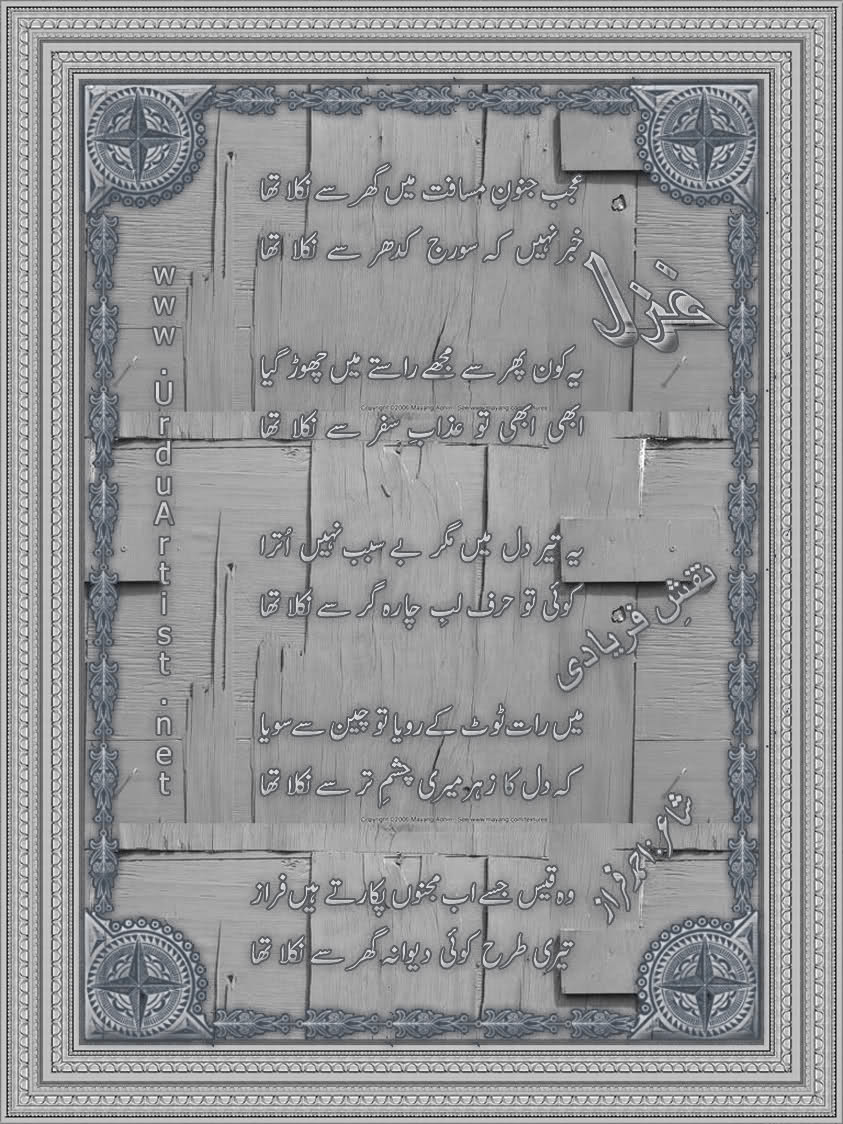 عجب جنونِ مسافت میں گھر سے نکلا تھا
خبر نہیں کہ سورج کدھر سے نکلا تھا
غزل
یہ کون پھر سے مجھے راستے میں چھوڑ گیا
Copyright ©2006 Mayang Adnin - See www.mayang.com/textures
ابھی ابھی تو عذابِ سفر سے نکلا تھا
یہ تیر دل میں مگر بے سبب نہیں اُترا
کوئی تو حرف لبِ چارہ گر سے نکلا تھا
نقشِ فریادی
میں رات ٹوٹ کے رویا تو چین سے سویا
کہ دل کا زہر میری چشمِ تر سے نکلا تھا
Copyright ©2006 Mayang Adnin - See www.mayang.com/textures
شاعر: احمد فراز
وہ قیس جسے اب مجنوں پکارتے ہیں فراز
تیری طرح کوئی دیوانہ گھر سے نکلا تھا
www.UrduArtist.net